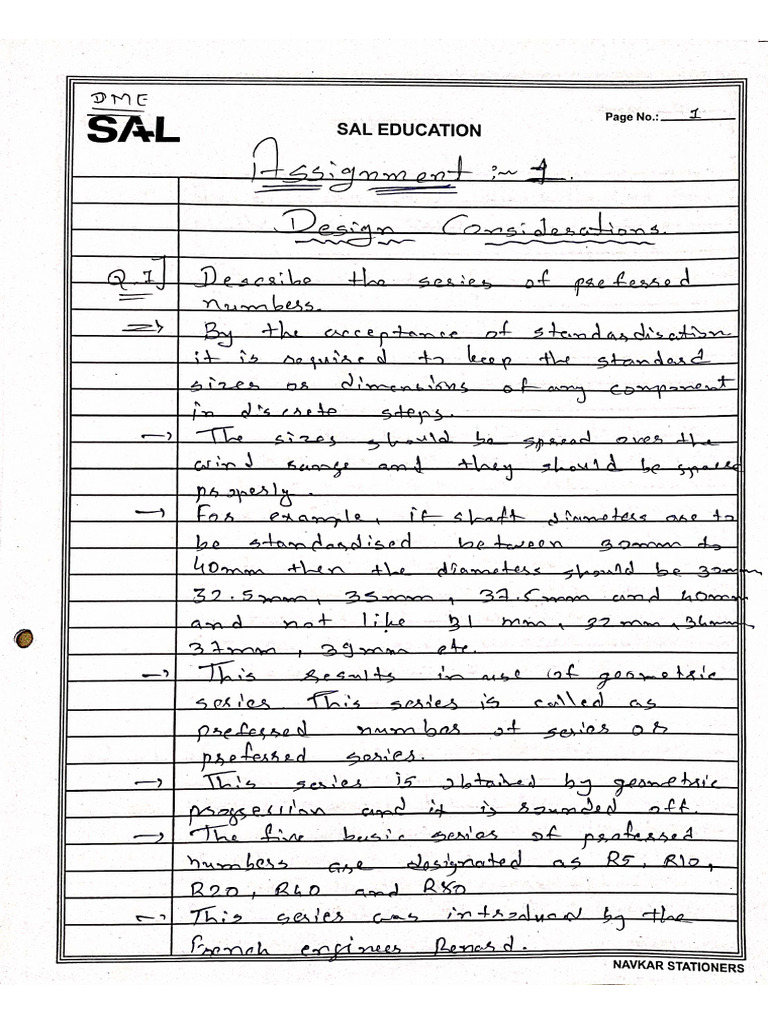 DME
SAL
SAL EDUCATION
Page No.: 1
Assignment :~ 1.
Design Considerations.
Q.1] Describe the series of preferred
numbers.
=> By the acceptance of standardisation
it is required to keep the standard
sizes or dimensions of any component
in discrete steps.
→ The sizes should be spread over the
wind range and they should be space
properly.
→ For example, if shaft diameters are to
be standardised between 30mm to
40mm then the diameters should be 30mm,
32.5mm, 35mm, 37.5mm and 40mm
and not like 31 mm, 32mm, 34mm,
37mm, 39mm etc.
→ This results in use of geometric
series. This series is called as
preferred number of series or
preferred series.
→ This series is obtained by geometric
progession and it is rounded off.
→ The five basic series of preferred
numbers are designated as R5, R10,
R20, R40 and R80
→ This series was introduced by the
French engineer Renard.
NAVKAR STATIONERS